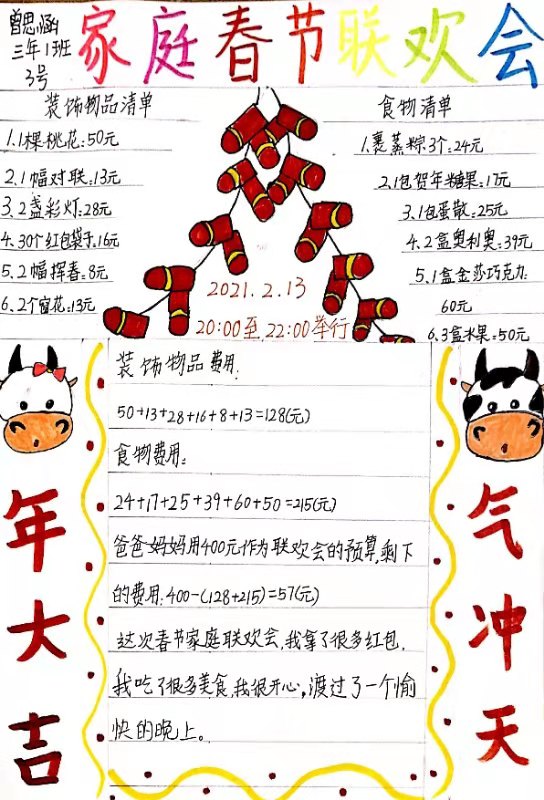 曾思涵
三年1班
3号
家庭春节联欢会
装饰物品清单
1.1棵桃花:50元
2.1幅对联:13元
3.2盏彩灯:28元
4.30个红包袋子:16元
5.2幅挥春:8元
6.2个窗花:13元
食物清单
1.裹蒸粽3个:24元
2.1包贺年糖果:17元
3.1包蛋散:25元
4.2盒奥利奥:39元
5.1盒金莎巧克力:
60元
6.3盒水果:50元
2021.2.13
20:00至22:00举行
装饰物品费用:
50+13+28+16+8+13=128(元)
食物费用:
24+17+25+39+60+50=215(元)
爸爸妈妈用400元作为联欢会的预算,剩下
的费用:400-(128+215)=57(元)
这次春节家庭联欢会,我拿了很多红包,
我吃了很多美食,我很开心,渡过了一个愉
快的晚上。
年大吉
气冲天